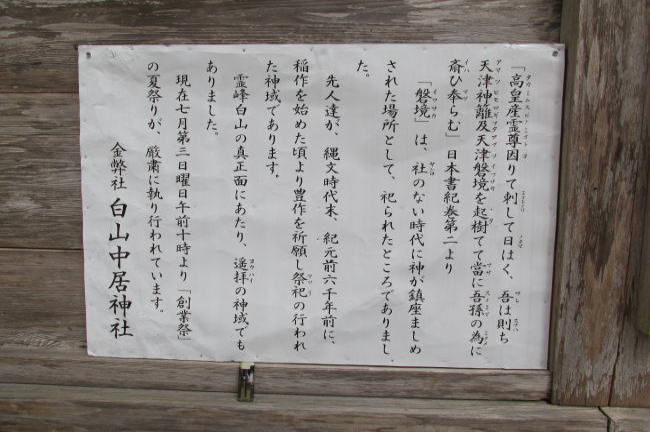 「高皇産霊尊因りて刺して曰はく、吾は則ち
天津神籬及天津磐境を起樹てて當に吾孫の為に
斎ひ奉らむ」日本書紀巻第二より
「磐境」は、社のない時代に神が鎮座ましめ
された場所として、祀られたところでありまし
た。
先人達が、縄文時代末、紀元前六千年前に、
稲作を始めた頃より豊作を祈願し祭祀の行われ
た神域であります。
霊峰白山の真正面にあたり、遥拝の神域でも
ありました。
現在七月第三日曜日午前十時より「創業祭」
の夏祭りが、厳粛に執り行われています。
金弊社 白山中居神社